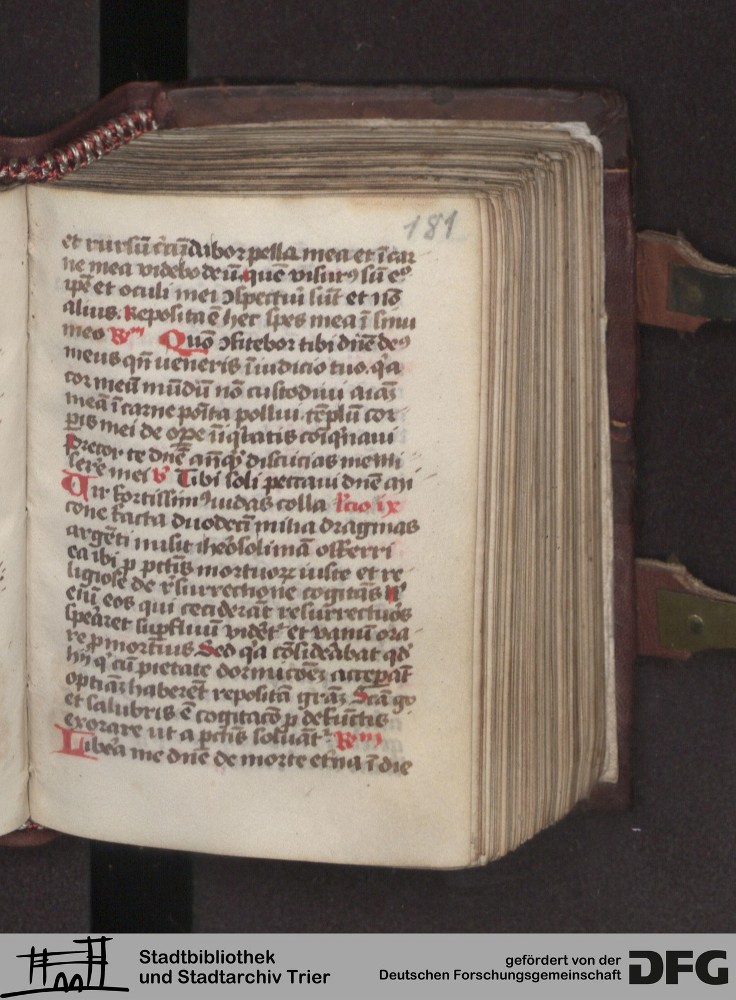 181
et rursū c̄cūdabor pella mea et ī car
ne mea videbo deū. quē visurꝰ sū eḡ
ip̄e et oculi mei ↄspecturi sūt et nō
alius. Reposita ē hec spes mea ī sinu
meo Rm Quō ↄfitebor tibi dn̄e deꝰ
meus qn̄ veneris ī iudicio tuo. q̄a
cor meū mūdū nō custodiui aīaꝫ
meā ī carne poīta pollui. tēplū cor
ꝑis mei de oꝑe īiq̄tatis coīq̄naui
Precor te dn̄e anq̄ꝫ discucias memi
sere mei V Tibi soli peccaui dn̄e an
Uir fortissimꝰ iudas colla lc̄io ix
cone facta duodecī milia dragmas
argēti misit iherosolimā offerri
ea ibi ꝓ pctīs mortuoꝝ iuste et re
ligiose de r̄surrectione cogitās N
enī eos qui ceciderāt resurrecturos
speraret suꝑfluū videret et vanū ora
re ꝓ mortuis Sed q̄a cōsideabat qd
hij q̄ cū pietate dormicōeꝫ acceperāt
optimā haberēt repositā grāꝫ Scā g̊
et salubris ē cogitacō ꝓ defūctis
exorare ut a pctīs soluāt Rm
Libera me dn̄e de morte etna ī die
Stadtbibliothek
und Stadtarchiv Trier
gefördert von der
Deutschen Forschungsgemeinschaft
DFG